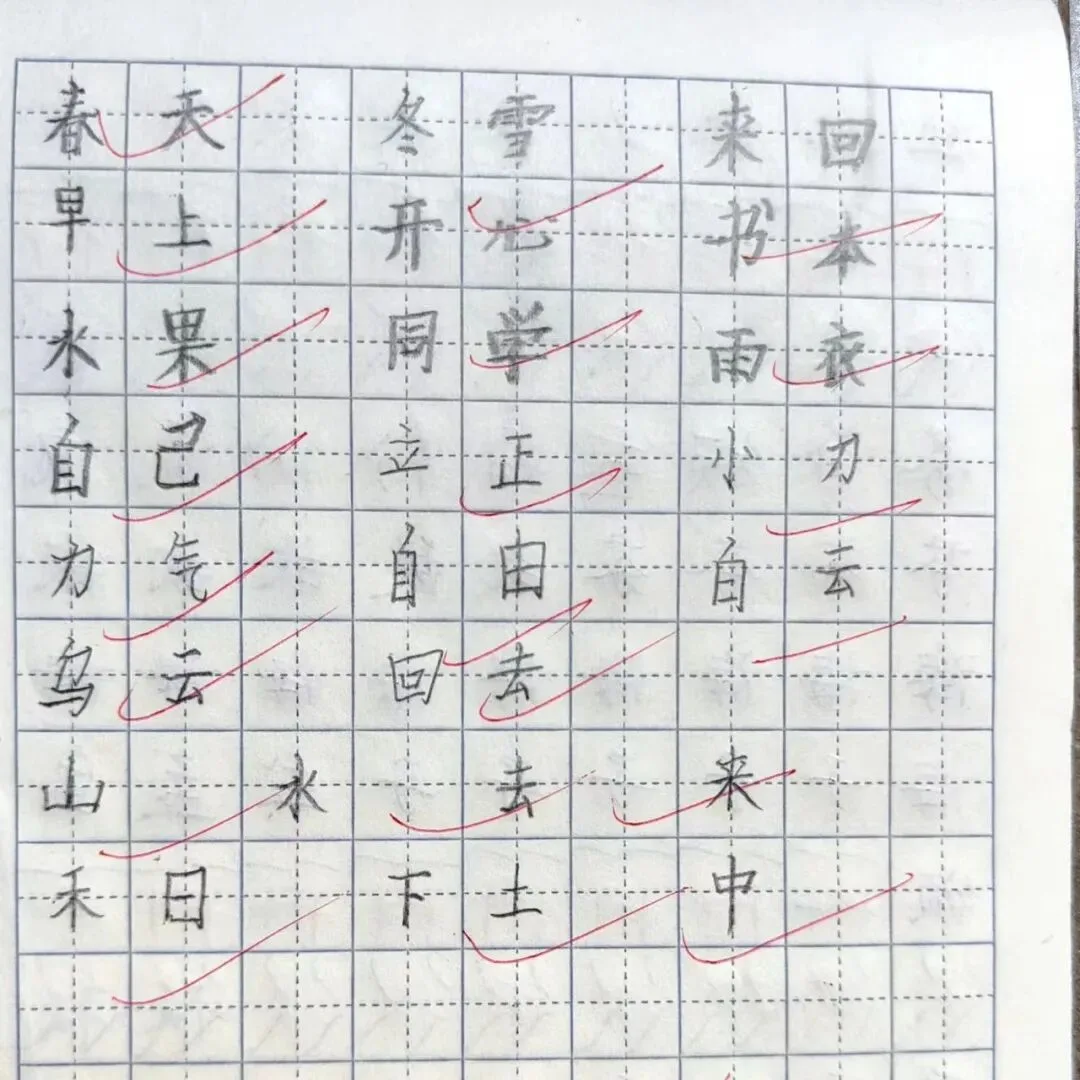 春天 冬雪 来回
早上 开心 书本
水果 同学 雨衣
自己 立正 小力
力气 自由 自去
乌云 回去
山 水 去 来
禾日 下土 中